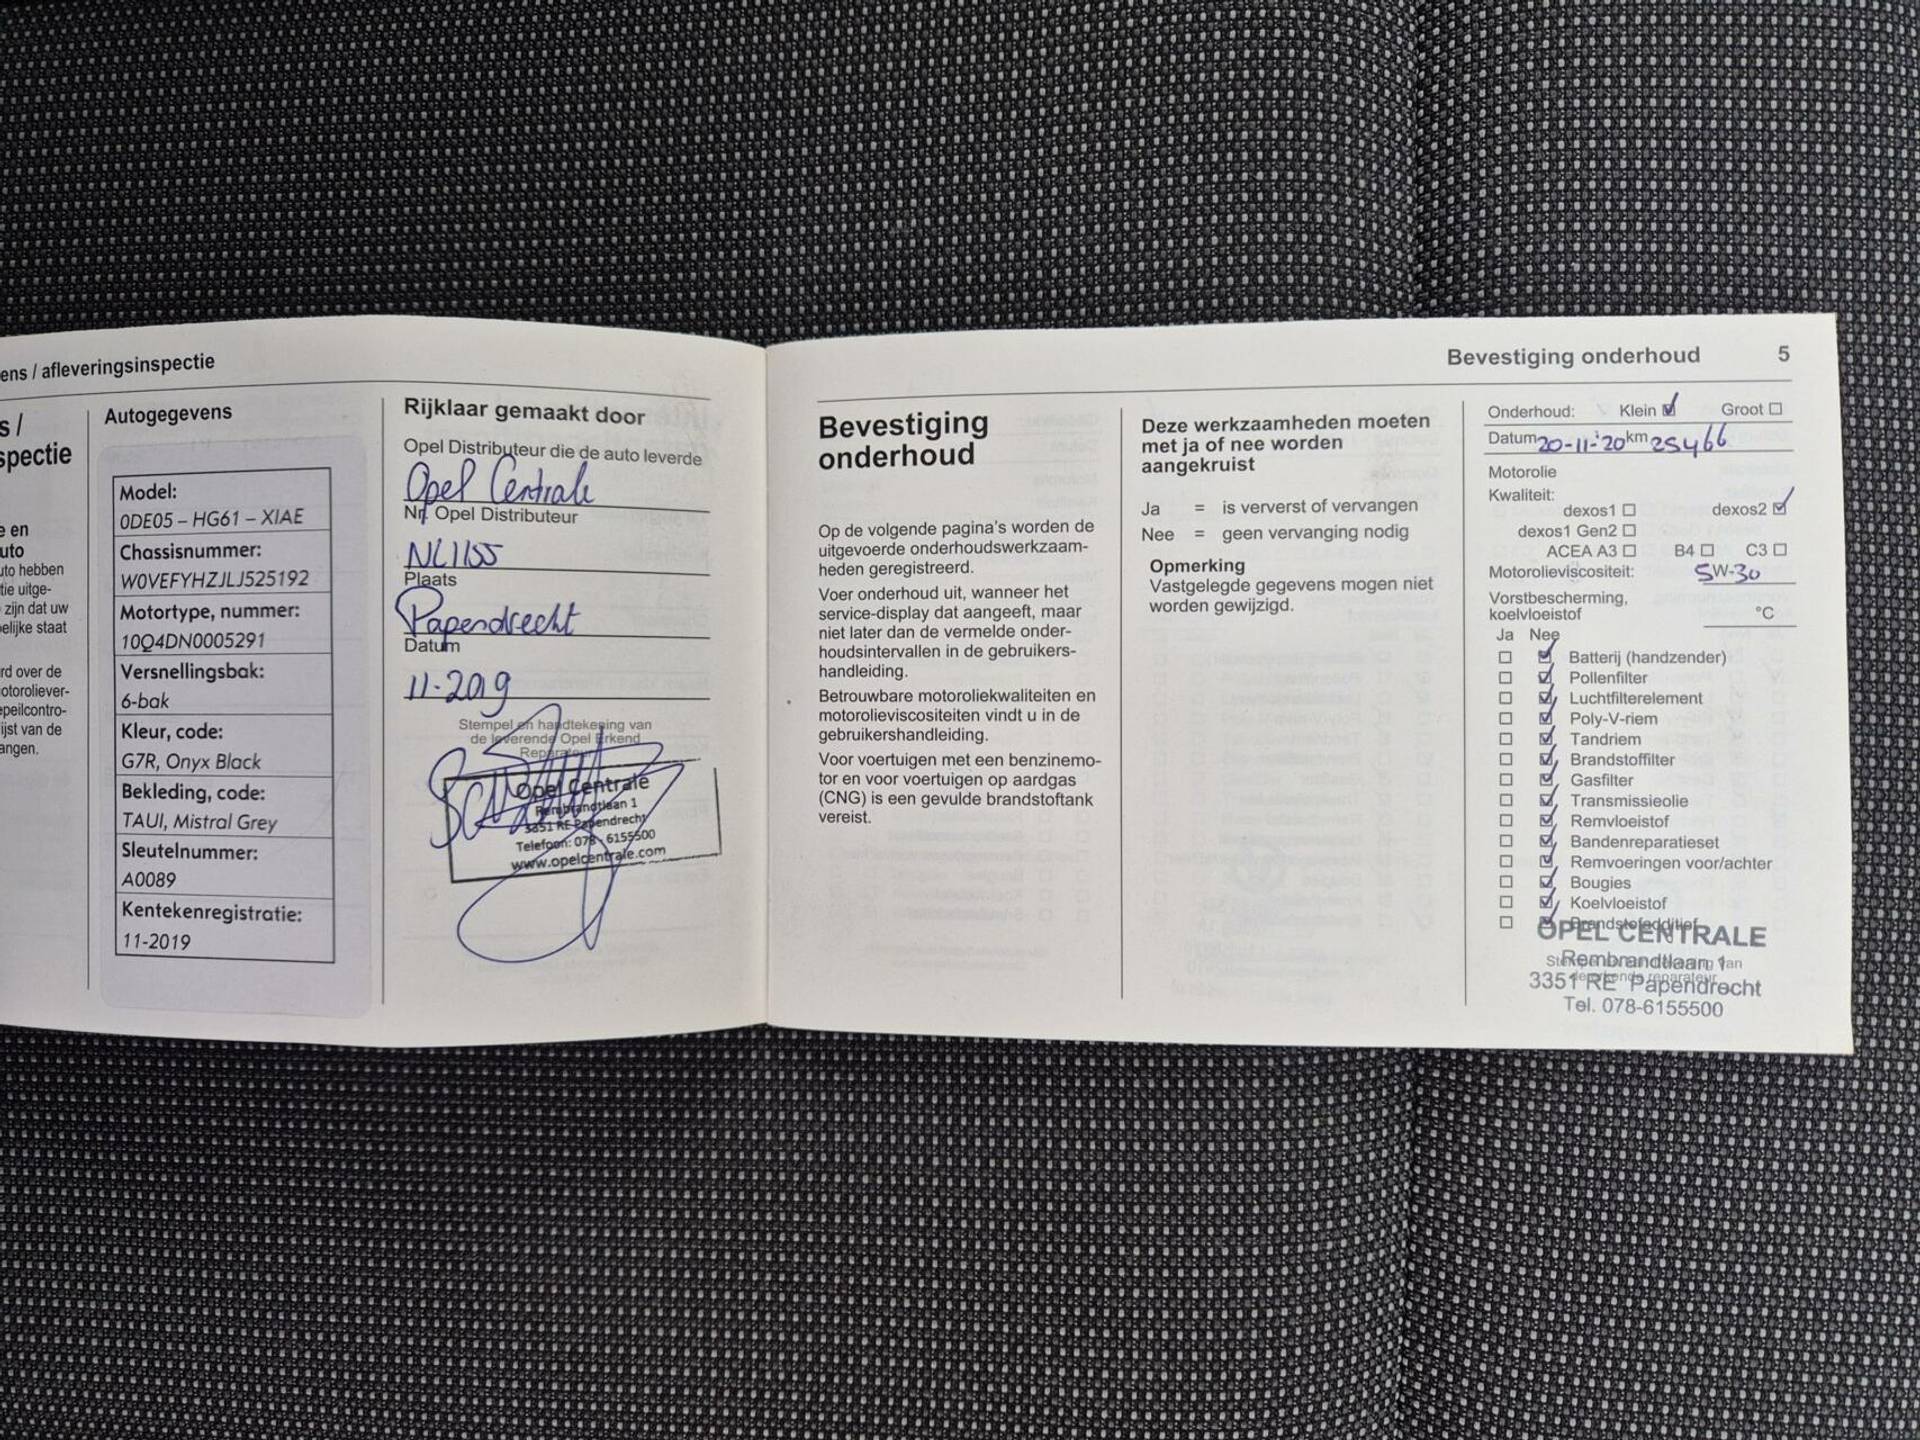 ens / afleveringsinspectie
s /
spectie
e en
uto
uto hebben
tie uitge-
zijn dat uw
elijke staat
rd over de
otoroliever-
epeilcontro-
ijst van de
angen.
Autogegevens
Model:
0DE05 – HG61 – XIAE
Chassisnummer:
W0VEFYHZJLJ525192
Motortype, nummer:
10Q4DN0005291
Versnellingsbak:
6-bak
Kleur, code:
G7R, Onyx Black
Bekleding, code:
TAUI, Mistral Grey
Sleutelnummer:
A0089
Kentekenregistratie:
11-2019
Rijklaar gemaakt door
Opel Distributeur die de auto leverde
Opel Centrale
Nr. Opel Distributeur
NL1155
Plaats
Papendrecht
Datum
11-2019
Stempel en handtekening van
de leverende Opel Erkend
Reparateur
Opel Centrale
Rembrandtlaan 1
3351 RE Papendrecht
Telefoon: 078 - 6155500
www.opelcentrale.com
Bevestiging onderhoud 5
Bevestiging
onderhoud
Op de volgende pagina's worden de
uitgevoerde onderhoudswerkzaam-
heden geregistreerd.
Voer onderhoud uit, wanneer het
service-display dat aangeeft, maar
niet later dan de vermelde onder-
houdsintervallen in de gebruikers-
handleiding.
Betrouwbare motoroliekwaliteiten en
motorolieviscositeiten vindt u in de
gebruikershandleiding.
Voor voertuigen met een benzinemo-
tor en voor voertuigen op aardgas
(CNG) is een gevulde brandstoftank
vereist.
Deze werkzaamheden moeten
met ja of nee worden
aangekruist
Ja = is ververst of vervangen
Nee = geen vervanging nodig
Opmerking
Vastgelegde gegevens mogen niet
worden gewijzigd.
Onderhoud: Klein ☑ Groot ☐
Datum 20-11-'20 km 25466
Motorolie
Kwaliteit:
dexos1 ☐ dexos2 ☑
dexos1 Gen2 ☐
ACEA A3 ☐ B4 ☐ C3 ☐
Motorolieviscositeit: 5W-30
Vorstbescherming,
koelvloeistof °C
Ja Nee
☐ ☑ Batterij (handzender)
☐ ☑ Pollenfilter
☐ ☑ Luchtfilterelement
☐ ☑ Poly-V-riem
☐ ☑ Tandriem
☐ ☑ Brandstoffilter
☐ ☑ Gasfilter
☐ ☑ Transmissieolie
☐ ☑ Remvloeistof
☐ ☑ Bandenreparatieset
☐ ☑ Remvoeringen voor/achter
☐ ☑ Bougies
☐ ☑ Koelvloeistof
☐ ☑ Brandstofadditief
OPEL CENTRALE
Rembrandtlaan 1
3351 RE Papendrecht
Tel. 078-6155500